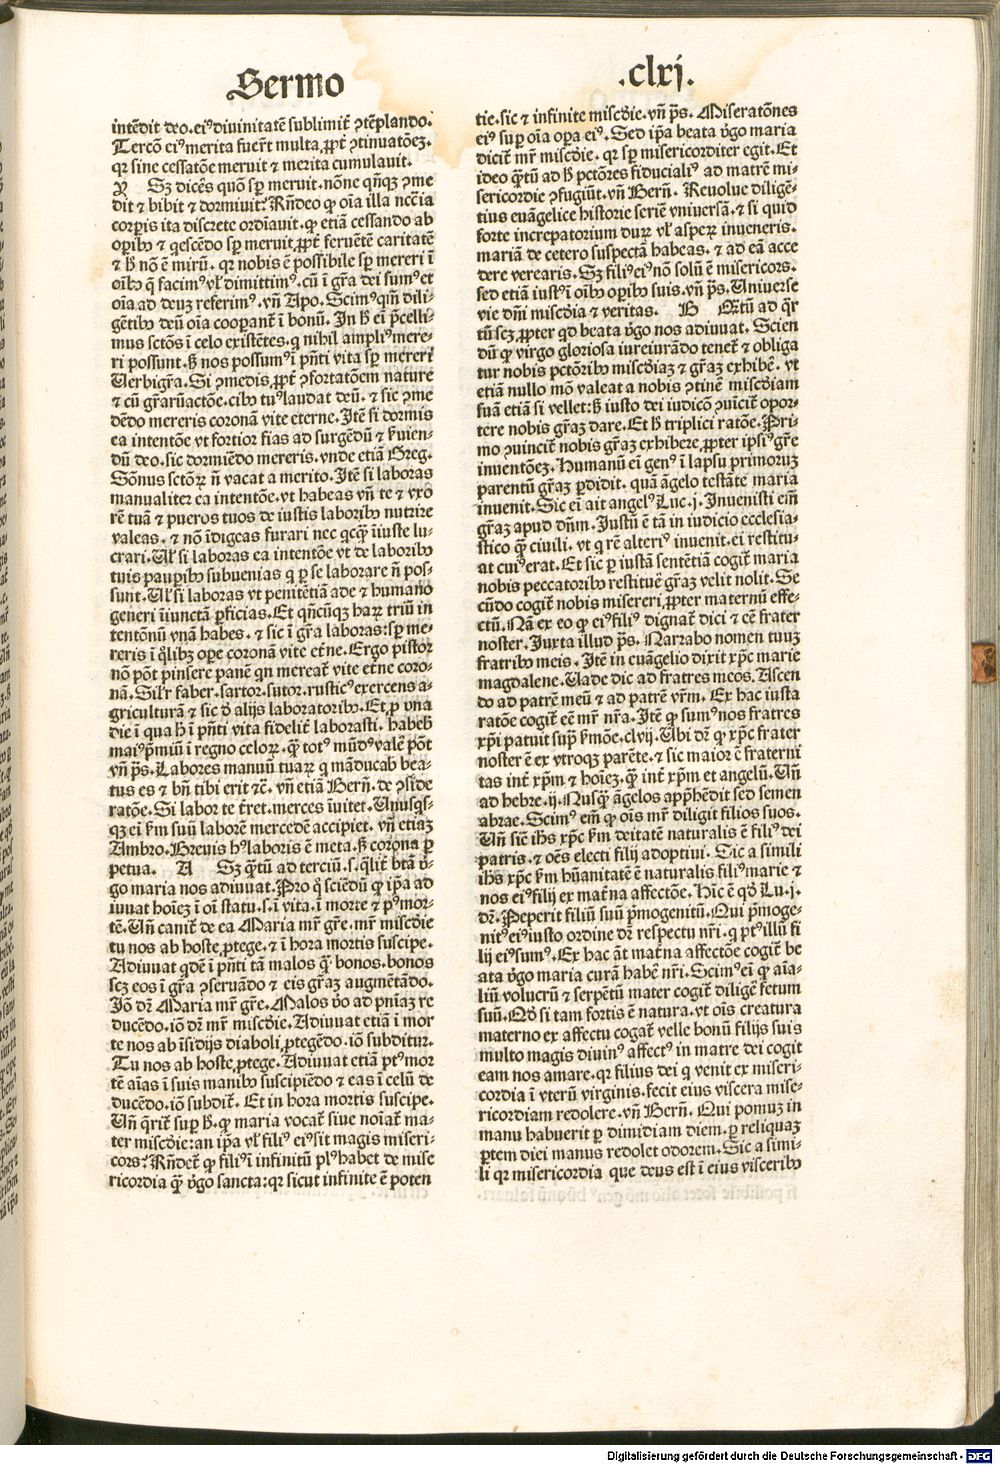 Sermo
.clxj.
intēdit deo. eiꝰ diuinitatē sublimit̄ ꝯtēplando.
Tercō eiꝰ merita fuer̄t multa ꝓpt̄ ꝯtinuatōeꝫ.
qꝛ sine cessatōe meruit ⁊ merita cumulauit.
Sꝫ dicēs quō sꝑ meruit. nōne qn̄qꝫ ꝯme
dit ⁊ bibit ⁊ dormiuit? Rn̄deo ꝙ oīa illa nccīa
corꝑis ita discrete ordīauit. ꝙ etiā cessando ab
oꝑibꝰ ⁊ qescēdo sꝑ meruit ꝓpt̄ feruētē caritatē
⁊ ꝑ nō ē mirū. qꝛ nobis ē possibile sꝑ mereri ī
oībꝰ q̄ facimꝰ vl̓ dimittimꝰ. cū ī gr̄a dei sumꝰ et
oīa ad deuꝫ referimꝰ. vn̄ Apo. Scimꝰ qm̄ dili-
gētibꝰ deū oīa coopant̄ ī bonū. In h̄ ei p̄celli-
mus sctōs ī celo existētes. q nihil ampliꝰ mere-
ri possunt. ꝭ nos possumꝰ ī pn̄ti vita sꝑ mereri
Verbigr̄a. Si ꝯmedis ꝓpt̄ ꝯfortatōem nature
⁊ cū gr̄aruactōe. cibꝰ tuꝰ laudat deū. ⁊ sic ꝯme
dēdo mereris coronā vite eterne. Itē si dormis
ea intentōe vt fortior fias ad surgēdū ⁊ ꝭuien-
dū deo. sic dormiēdo mereris. vnde etiā Greg.
Sōnus sctōꝝ nō vacat a merito. Itē si laboras
manualiter ea intentōe. vt habeas vn̄ te ⁊ vxo
rē tuā ⁊ pueros tuos de iustis laboribꝰ nutrire
valeas. ⁊ nō īdigeas furari nec qcqꝫ īiuste lu-
crari. Vl̓ si laboras ea intentōe vt de laboribꝰ
tuis pauꝑibꝰ subuenias q ꝑ se laborare nō pos-
sunt. Vl̓ si laboras vt penitētiā ade ⁊ humano
generi īiunctā ꝑficias. Et qn̄cūqꝫ haꝝ triū in
tentōnū vnā habes. ⁊ sic ī gr̄a laboras: sꝑ me-
reris ī qͦlibꝫ oꝑe coronā vite et̄ne. Ergo pistor
nō pōt pinsere panē qn mereat̄ vite et̄ne coro-
nā. Sil̓r faber. sartor. sutor. rusticꝰ exercens a-
griculturā ⁊ sic ꝺ alijs laboratoribꝰ. Et ꝓ vna
die ī qua h̄ ī pn̄ti vita fidelit̄ laborasti. habeb̄
maiꝰ p̄miū ī regno celoꝝ. qꝫ totꝰ mūdꝰ valē pōt
vn̄ ps̄. Labores manuū tuaꝝ q māducab̄ bea-
tus es ⁊ bn̄ tibi erit ⁊c̄. vn̄ etiā Bern̄. de ꝯside
ratōe. Si labor te t̄ret. merces īuitet. Vnusqs-
qꝫ ei ẜm suū laborē mercedē accipiet. vn̄ etiaꝫ
Ambro. Breuis hꝰ laboris ē meta. ꝭ corona ꝑ
petua. A Sꝫ qꝫtū ad terciū. s. qlit̄ btā v̄-
go maria nos adiuuat. Pro qͦ sciēdū ꝙ ip̄a ad
iuuat hoīeꝫ ī oī statu. s. ī vita. ī morte ⁊ pꝰ mor-
tē. Vn̄ canit̄ de ea Maria mr̄ gr̄e. mr̄ miscdīe
tu nos ab hoste ꝓtege. ⁊ ī hora mortis suscipe.
Adiuuat qdē ī pn̄ti tā malos qꝫ bonos. bonos
scꝫ eos ī gr̄a ꝯseruādo ⁊ eis gr̄aꝫ augmētādo.
Iō dꝛ Maria mr̄ gr̄e. Malos v̄o ad pn̄iaꝫ re
ducēdo. iō dꝛ mr̄ miscdīe. Adiuuat etiā ī mor
te nos ab īsidijs diaboli ꝓtegēdo. iō subditur.
Tu nos ab hoste ꝓtege. Adiuuat etiā ptꝰ mor
tē aīas ī suis manibꝰ suscipiēdo ⁊ eas ī celū de
ducēdo. iō subdit̄. Et in hora mortis suscipe.
Vn̄ qrit̄ suꝑ h̄. ꝙ maria vocat̄ siue noīat̄ ma-
ter miscdīe: an ip̄a vl̓ filiꝰ eiꝰ sit magis miseri-
cors? Rn̄det̄ ꝙ filiꝰ ī infinitū plꝰ habet de mise
ricordia qꝫ v̄go sancta: qꝛ sicut infinite ē poten
tie. sic ⁊ infinite miscdīe. vn̄ ps̄. Miseratōnes
eiꝰ suꝑ oīa oꝑa eiꝰ. Sed ip̄a beata v̄go maria
dicit̄ mr̄ miscdīe. qꝛ sꝑ misericorditer egit. Et
ideo qꝫtū ad h̄ pctōres fiducialiꝰ ad matrē mi-
sericordie ꝯfugiūt. vn̄ Bern̄. Reuolue diligē-
tius euāgelice historie seriē vniuersā. ⁊ si quid
forte increpatorium duꝝ vl̓ asperꝝ inueneris.
mariā de cetero suspectā habeas. ⁊ ad eā acce
dere verearis. Sꝫ filiꝰ eiꝰ nō solū ē misericors.
sed etiā iustꝰ ī oībꝰ oꝑibꝰ suis. vn̄ ps̄. Vniuerse
vie dn̄i miscdīa ⁊ veritas. B Qꝫtū ad qr̄
tū scꝫ ꝓpter qd beata v̄go nos adiuuat. Scien
dū ꝙ virgo gloriosa iureiurādo tenet̄ ⁊ obliga
tur nobis pctōribꝰ miscdīaꝫ ⁊ gr̄aꝫ exhibē. vt
etiā nullo mō valeat a nobis ꝯtinē miscdīam
suā etiā si vellet: ꝭ iusto dei iudicō ꝯuīcit̄ opor-
tere nobis gr̄aꝫ dare. Et h̄ triplici ratōe. Pri-
mo ꝯuincit̄ nobis gr̄aꝫ exhibere ꝓpter ipsiꝰ gr̄e
inuentōeꝫ. Humanū ei genꝰ ī lapsu primoruꝫ
parentū gr̄aꝫ ꝑdidit. quā āgelo testāte maria
inuenit. Sic ei ait angelꝰ Luc. j. Inuenisti em̄
gr̄aꝫ apud dn̄m. Iustū ē tā in iudicio ecclesia-
stico qꝫ ciuili. vt q rē alteriꝰ inuenit. ei restitu-
at cuiꝰ erat. Et sic ꝑ iustā sentētiā cogit̄ maria
nobis peccatoribꝰ restituē gr̄aꝫ velit nolit. Se
cūdo cogit̄ nobis misereri ꝓpter maternū effe-
ctū. Nā ex eo ꝙ eiꝰ filiꝰ dignat̄ dici ⁊ eē frater
noster. Iuxta illud ps̄. Narrabo nomen tuuꝫ
fratribꝰ meis. Itē in euāgelio dixit xp̄c marie
magdalene. Vade dic ad fratres meos. Ascen
do ad patrē meū ⁊ ad patrē vr̄m. Ex hac iusta
ratōe cogit̄ eē mr̄ nr̄a. Itē ꝙ sumꝰ nos fratres
xp̄i patuit suꝑ ẜmōe. clvij. Vbi dꝛ ꝙ xp̄c frater
noster ē ex vtroqꝫ parēte. ⁊ sic maior ē fraterni
tas int̄ xp̄m ⁊ hoīeꝫ. qꝫ int̄ xp̄m et angelū. Vn̄
ad hebre. ij. Nusqꝫ āgelos app̄hēdit sed semen
abrae. Scimꝰ em̄ ꝙ oīs mr̄ diligit filios suos.
Vn̄ sic̄ ih̄s xp̄c ẜm deitatē naturalis ē filiꝰ dei
patris. ⁊ oēs electi filij adoptiui. Sic a simili
ih̄s xp̄c ẜm hūanitatē ē naturalis filiꝰ marie ⁊
nos eiꝰ filij ex mat̄na affectōe. Hīc ē qd̄ Lu. j.
dꝛ. Peperit filiū suū p̄mogenitū. Qui p̄moge-
nitꝰ eiꝰ iusto ordine dꝛ respectu nr̄i. q ptꝰ illū fi
lij eiꝰ sumꝰ. Ex hac āt mat̄na affectōe cogit̄ be
ata v̄go maria curā habē nr̄i. Scimꝰ ei ꝙ aīa-
liū volucrū ⁊ serpētū mater cogit̄ diligē fetum
suū. Qd̄ si tam fortis ē natura. vt oīs creatura
materno ex affectu cogat̄ velle bonū filijs suis
multo magis diuinꝰ affectꝰ in matre dei cogit
eam nos amare. qꝛ filius dei q venit ex miseri-
cordia ī vterū virginis. fecit eius viscera mise-
ricordiam redolere. vn̄ Bern̄. Qui pomuꝫ in
manu habuerit ꝑ dimidiam diem. ꝑ reliquaꝫ
ꝑtem diei manus redolet odorem. Sic a simi-
li qꝛ misericordia que deus est ī eius visceribꝰ
Digitalisierung gefördert durch die Deutsche Forschungsgemeinschaft - DFG